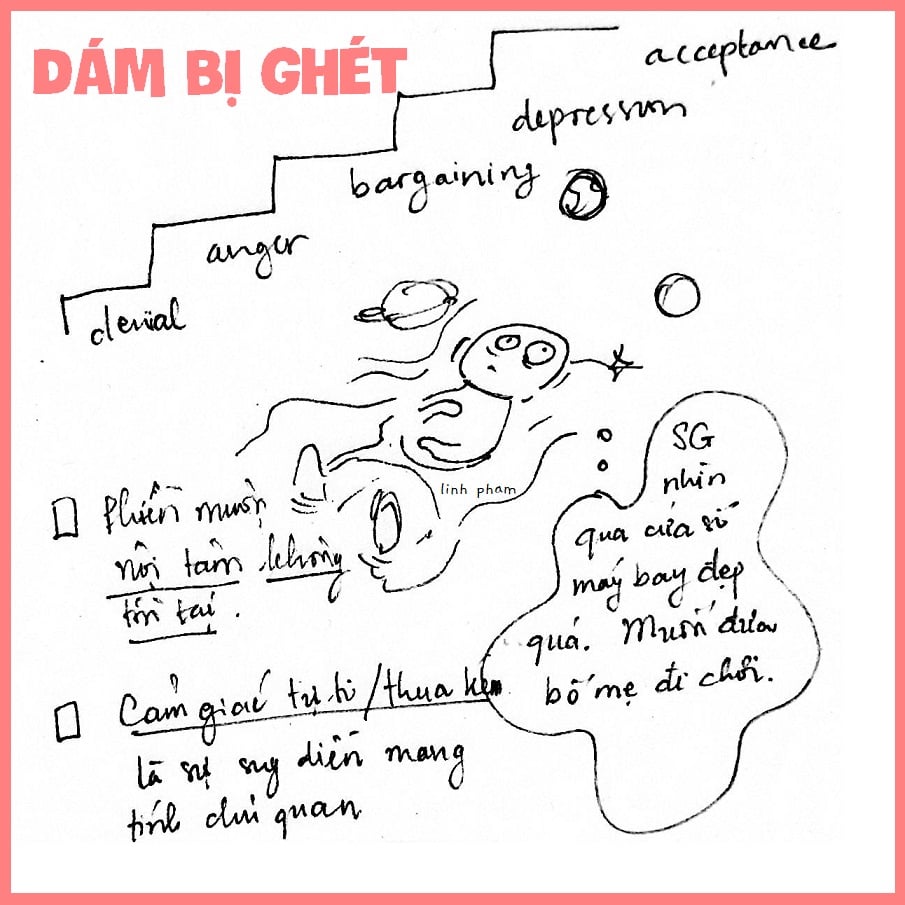 DÁM BỊ GHÉT
acceptance
depression
bargaining
anger
denial
linh pham
SG
nhìn
qua cửa sổ
máy bay đẹp
quá. Muốn đưa
bố mẹ đi chơi.
Phiền muộn
nội tâm không
tồn tại.
Cảm giác tự ti/thua kém
là sự suy diễn mang
tính chủ quan